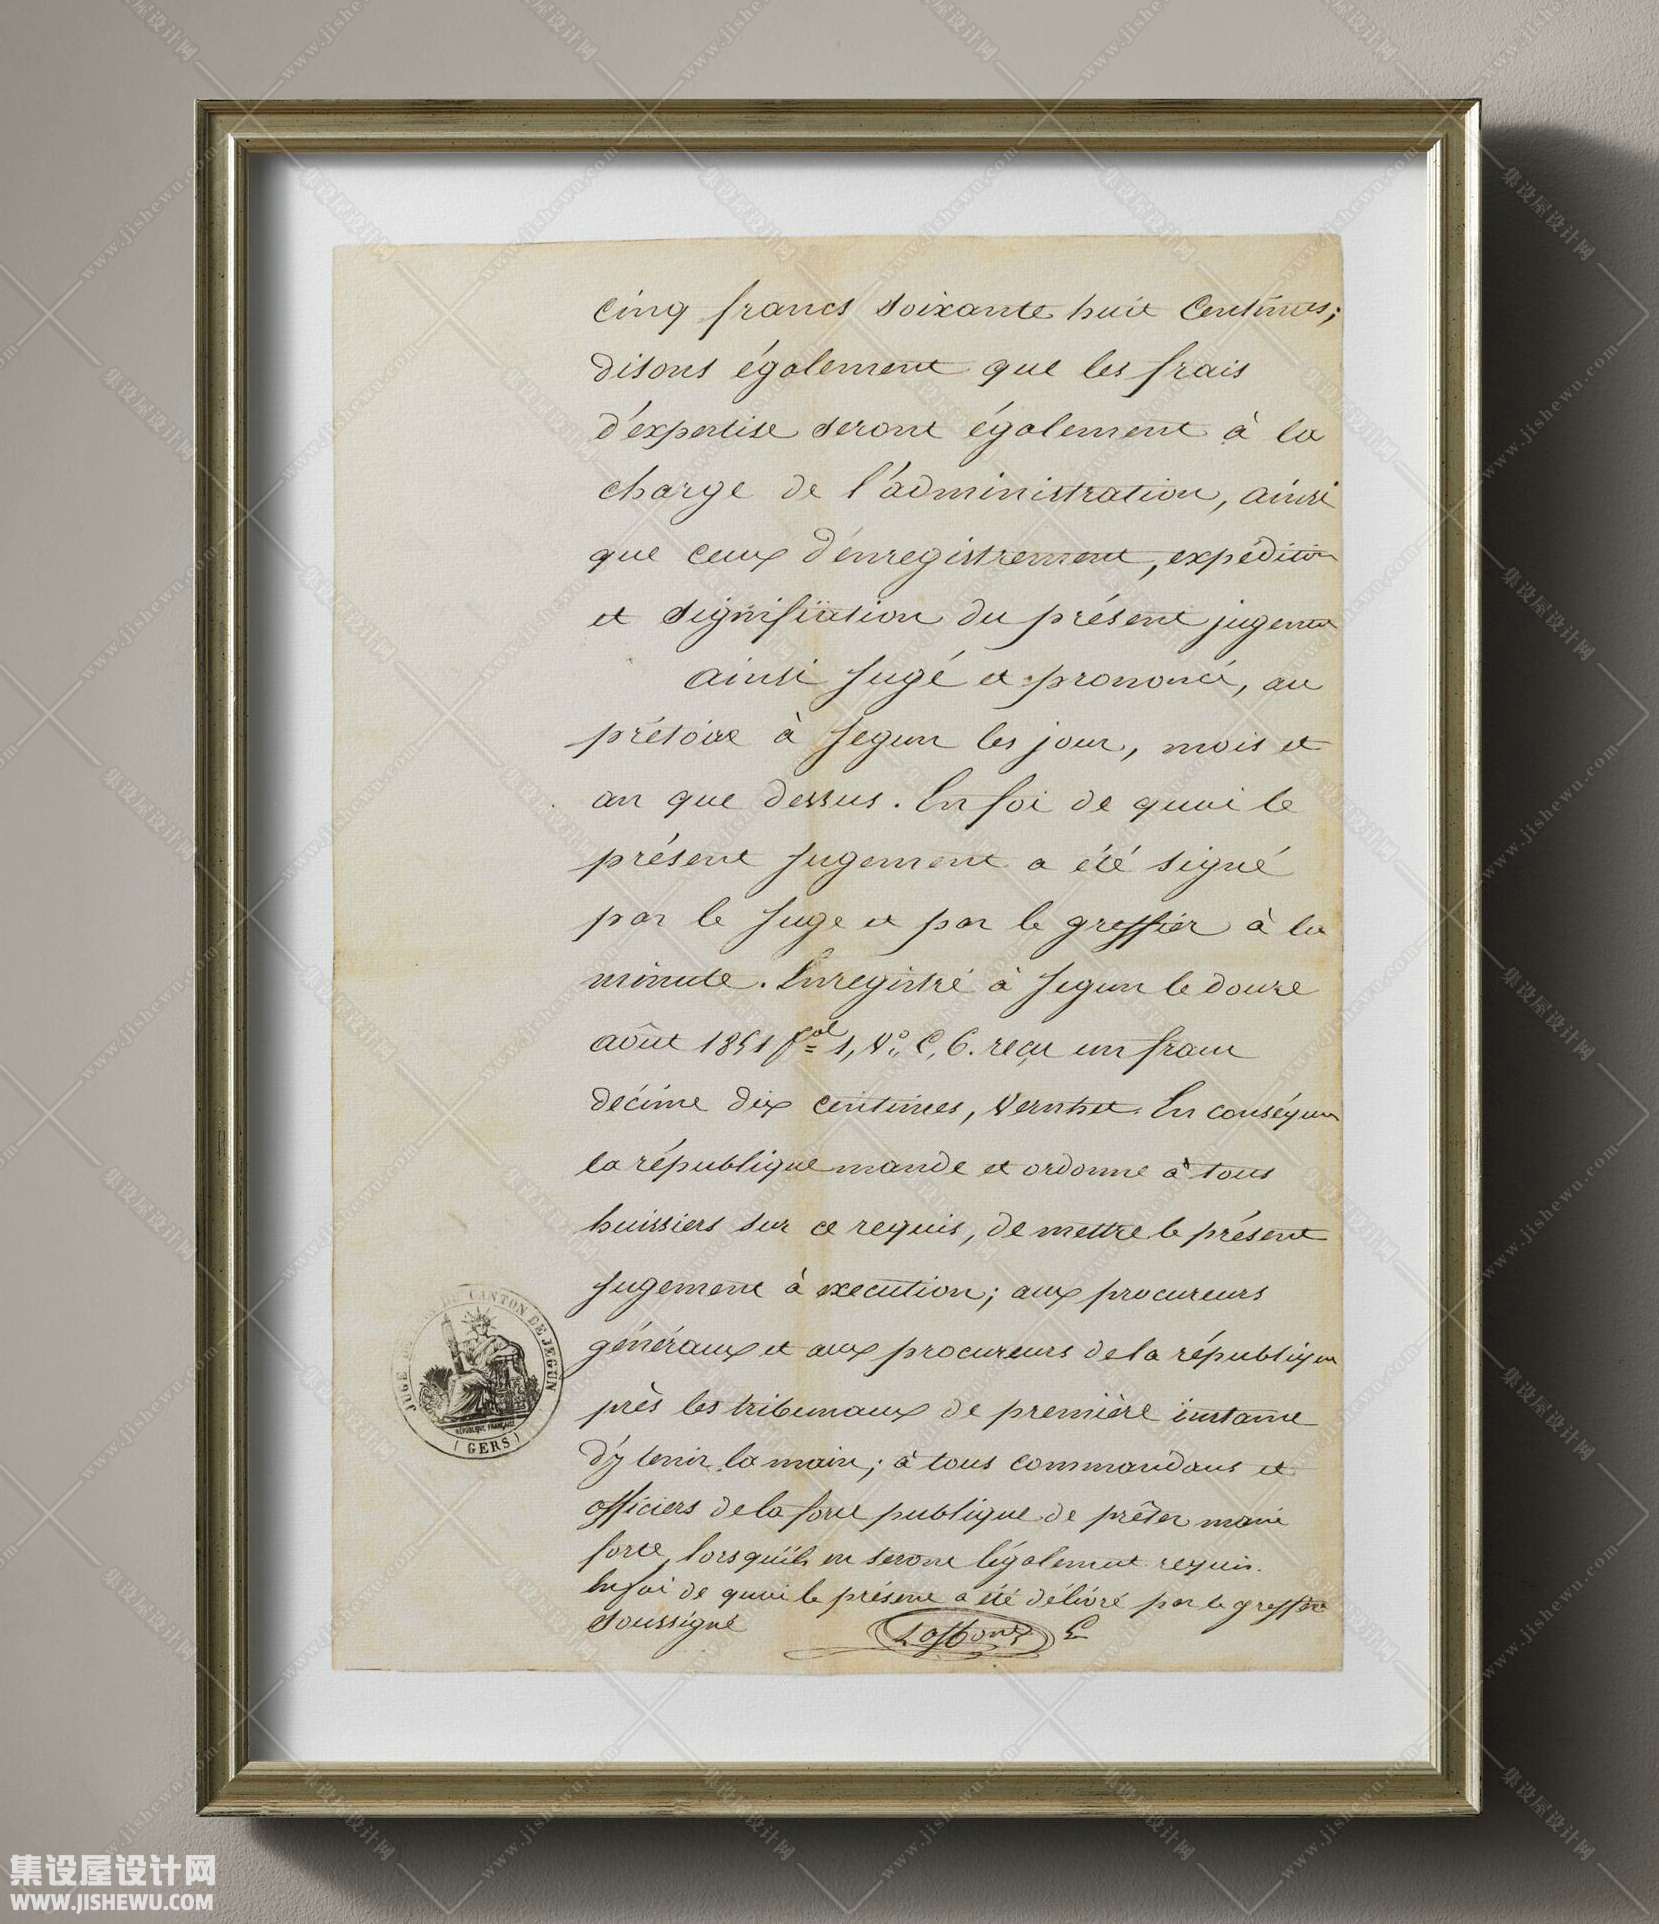 cinq francs soixante huit centimes;
disons également que les frais
d'expertise seront également à la
charge de l'administration, ainsi
que ceux d'enregistrement, expédition
et signification du présent jugement
ainsi jugé et prononcé, au
prétoire à Jegun les jour, mois et
an que dessus. En foi de quoi le
présent jugement a été signé
par le juge et par le greffier à la
minute. Enregistré à Jegun le douze
août 1851 fol 1, Vo, C, 6. reçu un franc
décime dix centimes, Vernhet. En conséquen
la république mande et ordonne à tous
huissiers sur ce requis, de mettre le présent
jugement à execution; aux procureurs
généraux et aux procureurs de la république
près les tribunaux de première instance
d'y tenir la main; à tous commandans et
officiers de la force publique de prêter main
force, lorsqu'ils en seront légalement requis.
En foi de quoi le présent a été délivré par le greffier
soussigné
JUGE DE PAIX DU CANTON DE JEGUN
RÉPUBLIQUE FRANÇAISE
(GERS)
集设屋设计网
WWW.JISHEWU.COM